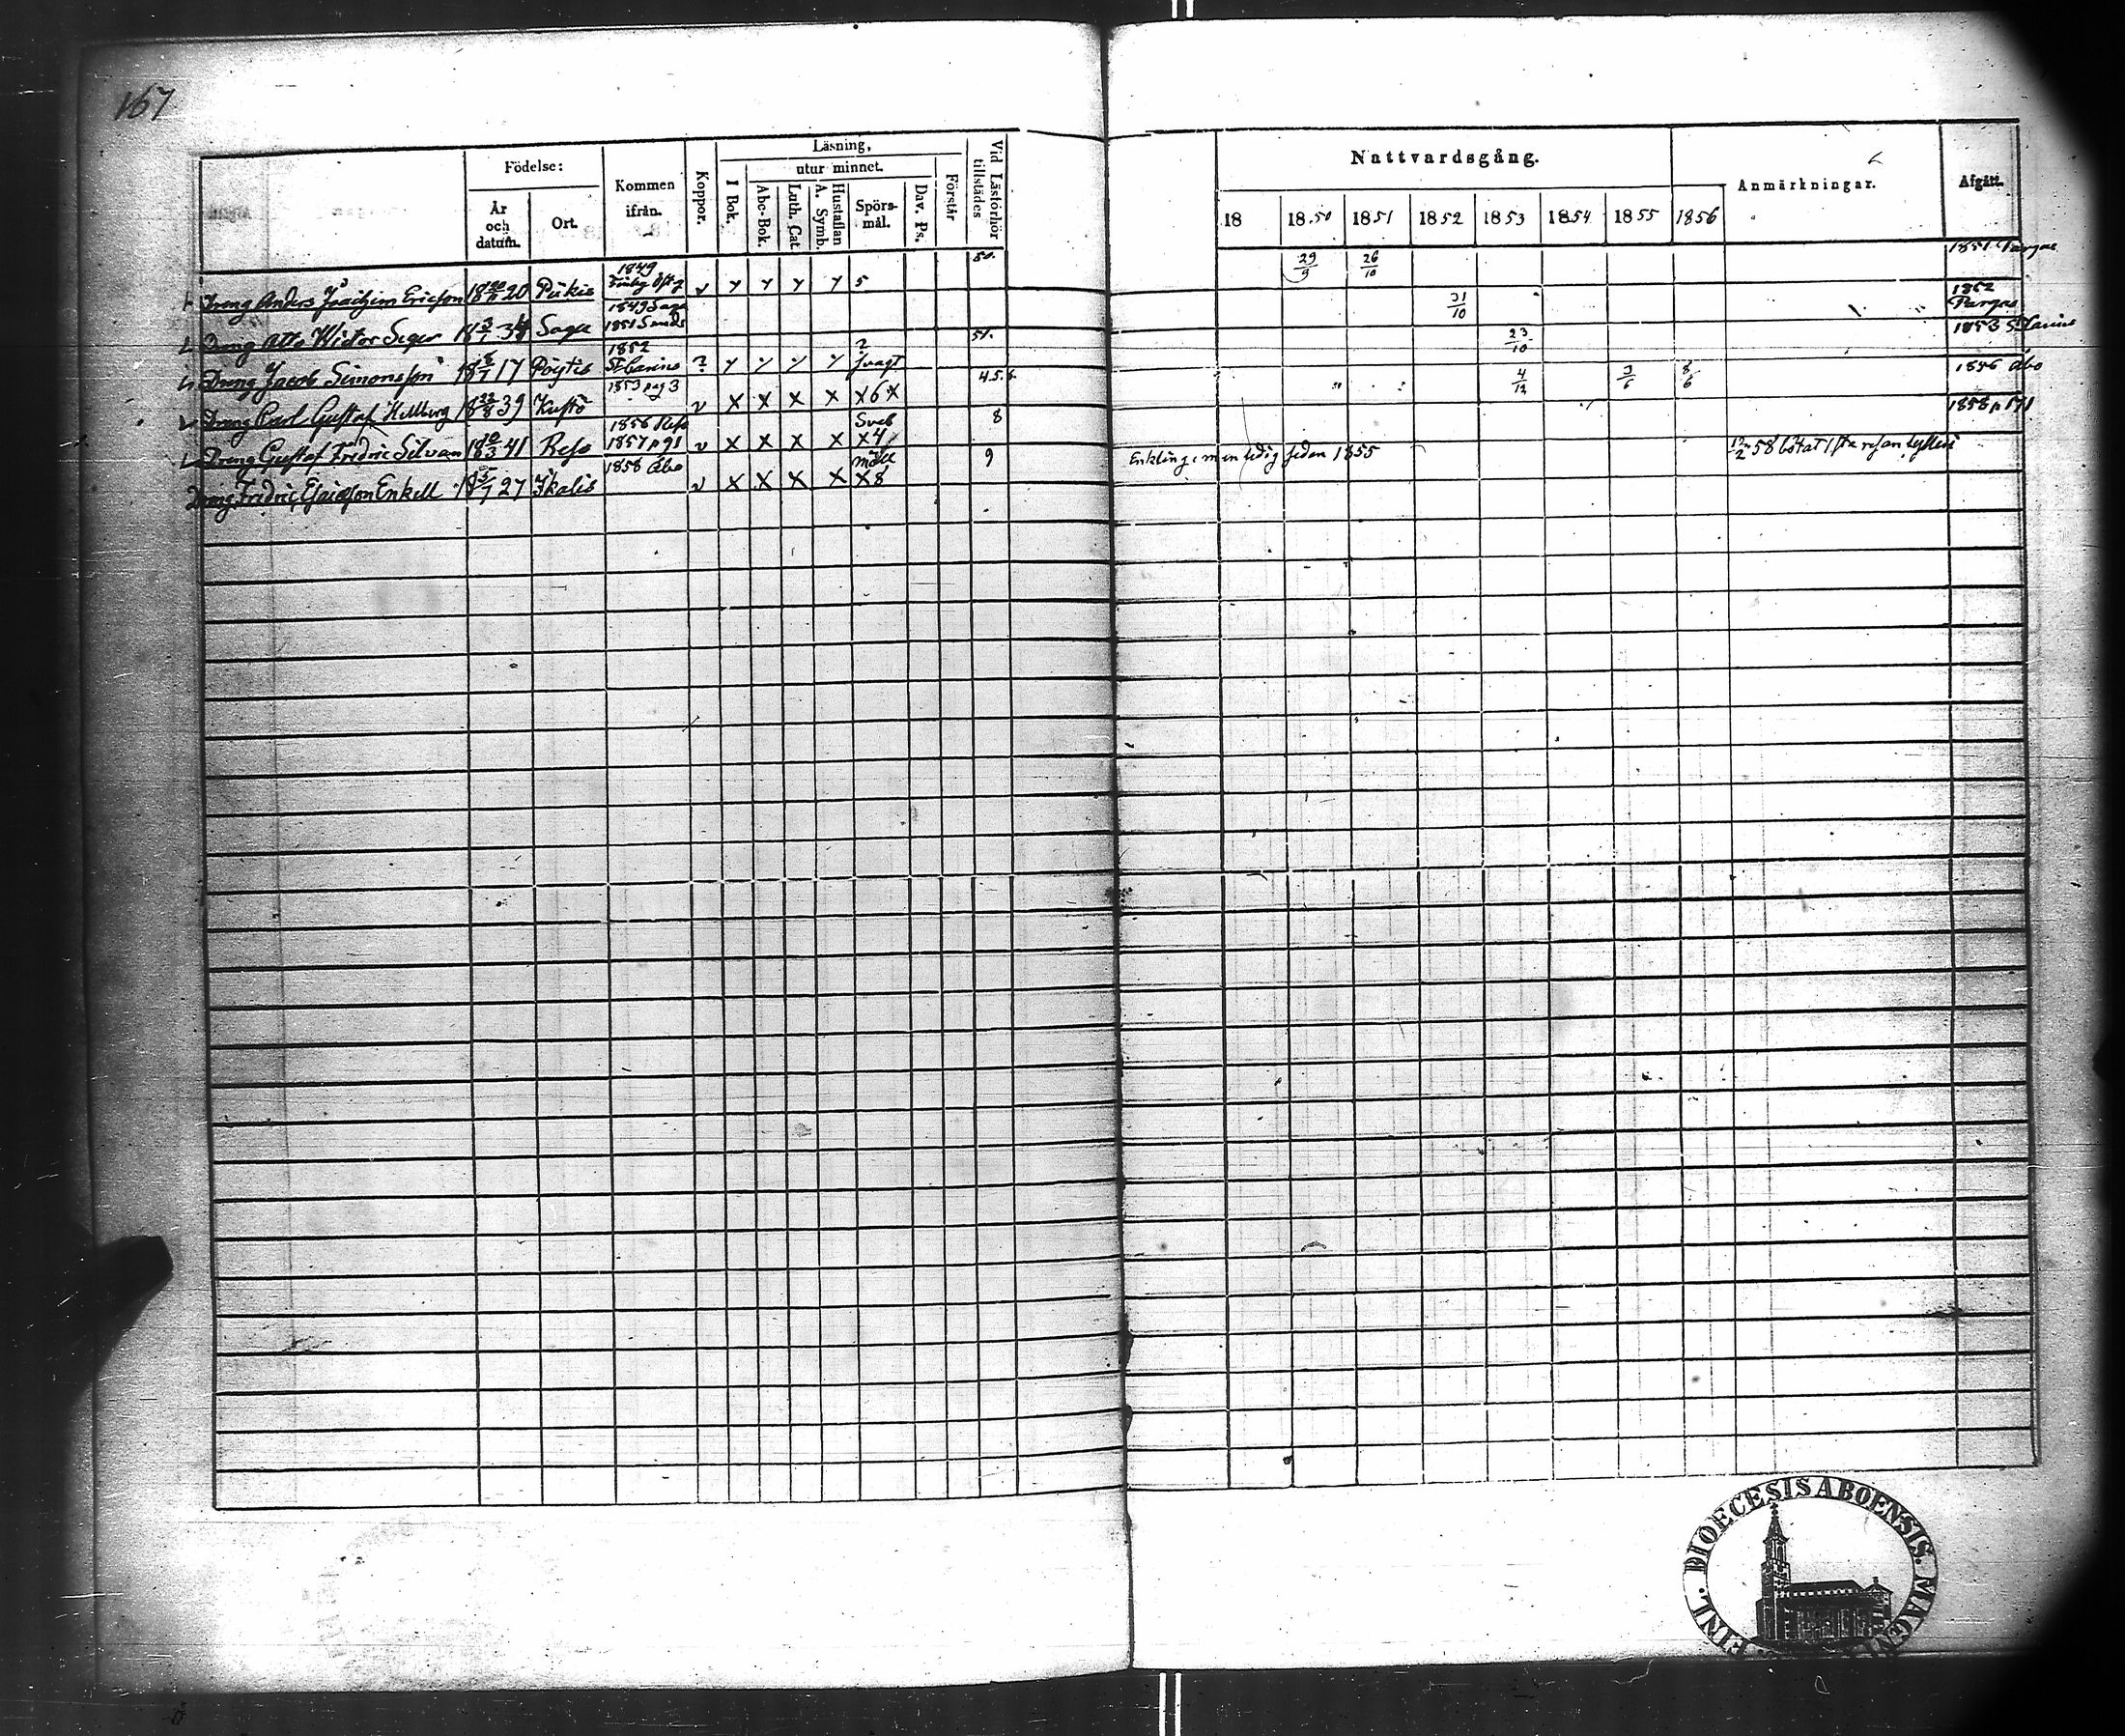 167
Födelse:
År och datum.
Ort.
Kommen ifrån.
Koppor.
Läsning,
I Bok.
utur minnet.
Abc-Bok.
Luth. Cat.
Hustaflan A. Symb.
Spörsmål.
Dav. Ps.
Förstår
Vid Läsförhör tillstädes
Nattvardsgång.
18 1850 1851 1852 1853 1854 1855 1856
Anmärkningar.
Afgått.
Dreng Anders Joachim Ericson 18 20 Pikis 1849 50. 29/9 26/10 1851 Pargas
Dreng Otto Wictor Seger Sagu 1849 Sagu 1851 31/10 1852 Pargas
Dreng Jacob Simonsson 18 17 Pöytis 1852 St Carins ? svagt 51. 23/10 1853 St Carins
Dreng Carl Gustaf Hellberg 18 22/8 39 Kustö 1853 pag 3 v X X X X X6X 4.5.6 4/12 3/6 8/6 1856 Åbo
Dreng Gustaf Fredric Silvan 18 41 Reso 1856 Reso 1857 p 91 v X X X X Sveb X4 8 1858 p 171
Dreng Fredric Enkell 18 5/7 27 Ikalis 1858 Åbo v X X X X X8 9 Enkling men ledig sedan 1855 58 bötat
DIOECESIS ABOENSIS. MAGNI
FINL.